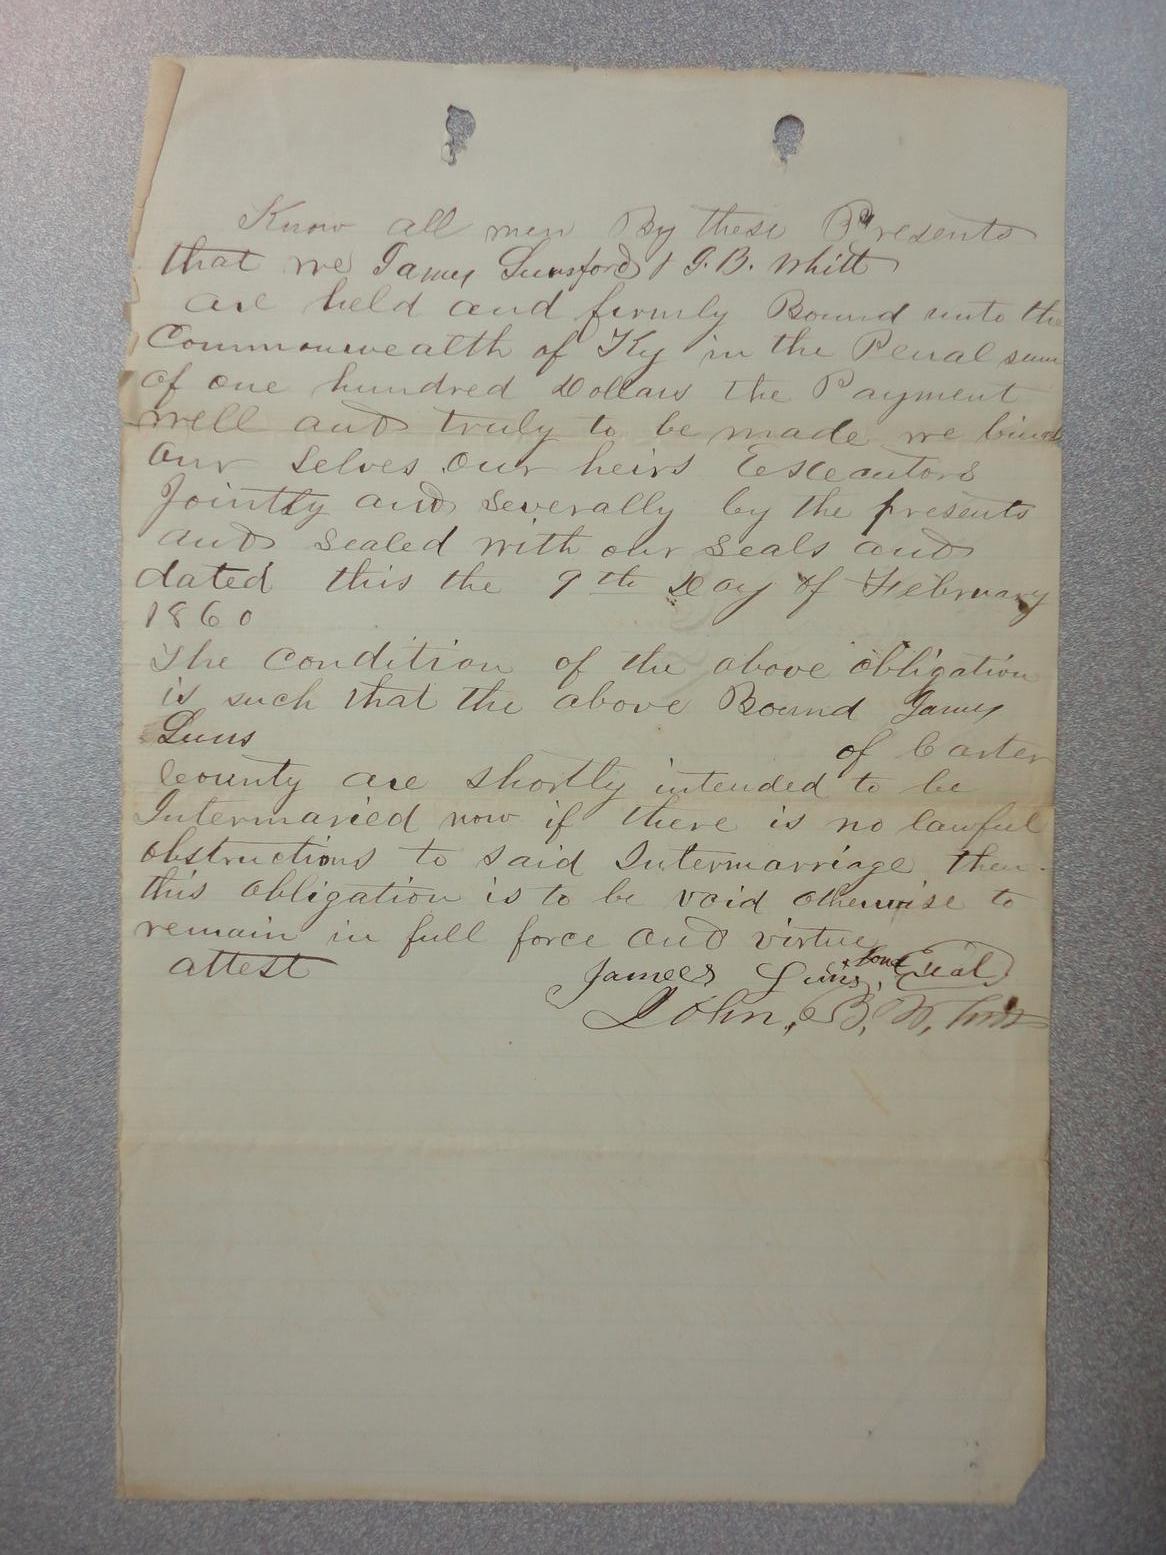 Know all men By these Presents
that we James Lunsford & J. B. Whitt
are held and firmly Bound unto the
Commonwealth of Ky in the Penal sum
of one hundred Dollars the Payment
well and truly to be made we bind
our selves our heirs Executors
Jointly and severally by the presents
and sealed with our seals and
dated this the 9th Day of February
1860
The condition of the above obligation
is such that the above Bound James
Luns of Carter
County are shortly intended to be
Intermaried now if there is no lawful
obstructions to said Intermarriage then
this obligation is to be void otherwise to
remain in full force and virtue
attest James Luns Seal
John, B, W,